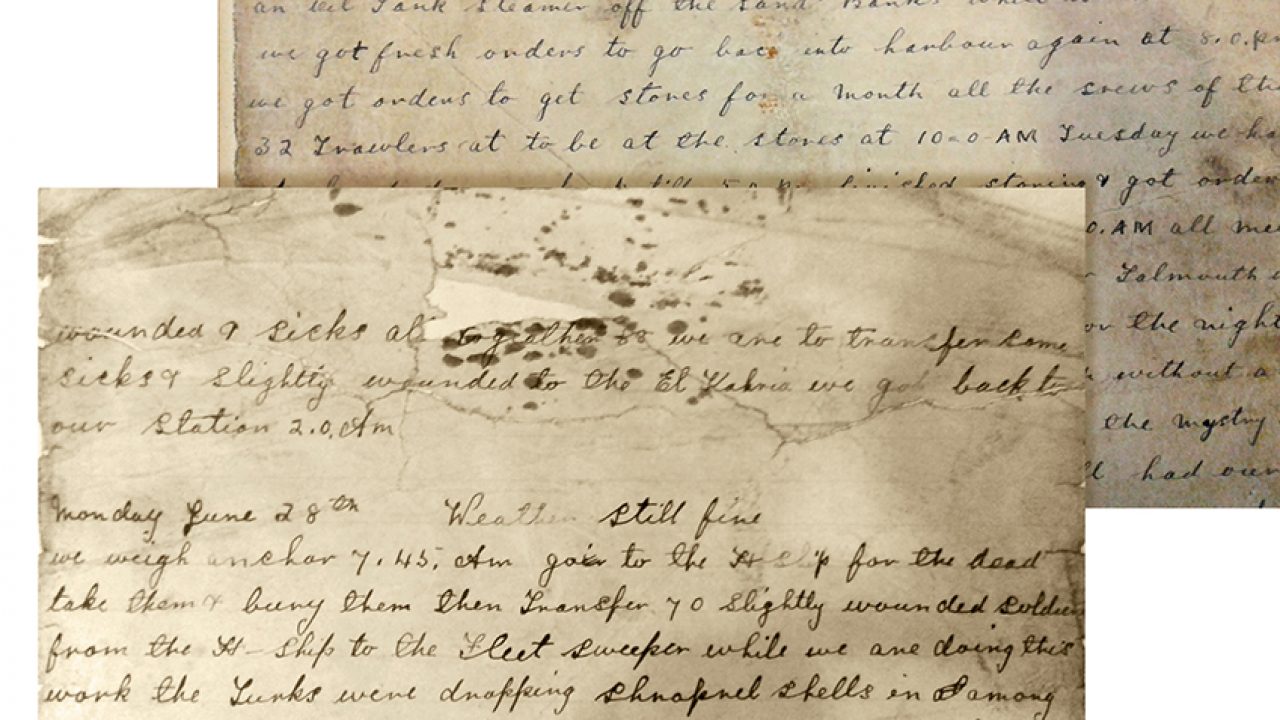 an Oil Tank Steamer off the Sand Banks
we got fresh orders to go back into harbour again at 8.0.pm
we got orders to get stores for a month all the crews of the
32 Trawlers at to be at the stores at 10-0-AM Tuesday we
till 5 finished storing & got orders
0.AM all
Falmouth
the night
without a
the mystry
had our
wounded & sicks altogeather 88 we are to transfer some
sicks & slightly wounded to the El Kahria we got back to
our Station 2.0. Am
Monday June 28th Weather still fine
we weigh anchor 7.45. Am goin to the H Ship for the dead
take them & bury them then Transfer 70 slightly wounded soldiers
from the H-Ship to the Fleet sweeper while we are doing this
work the Turks were dropping shrapnel shells in among